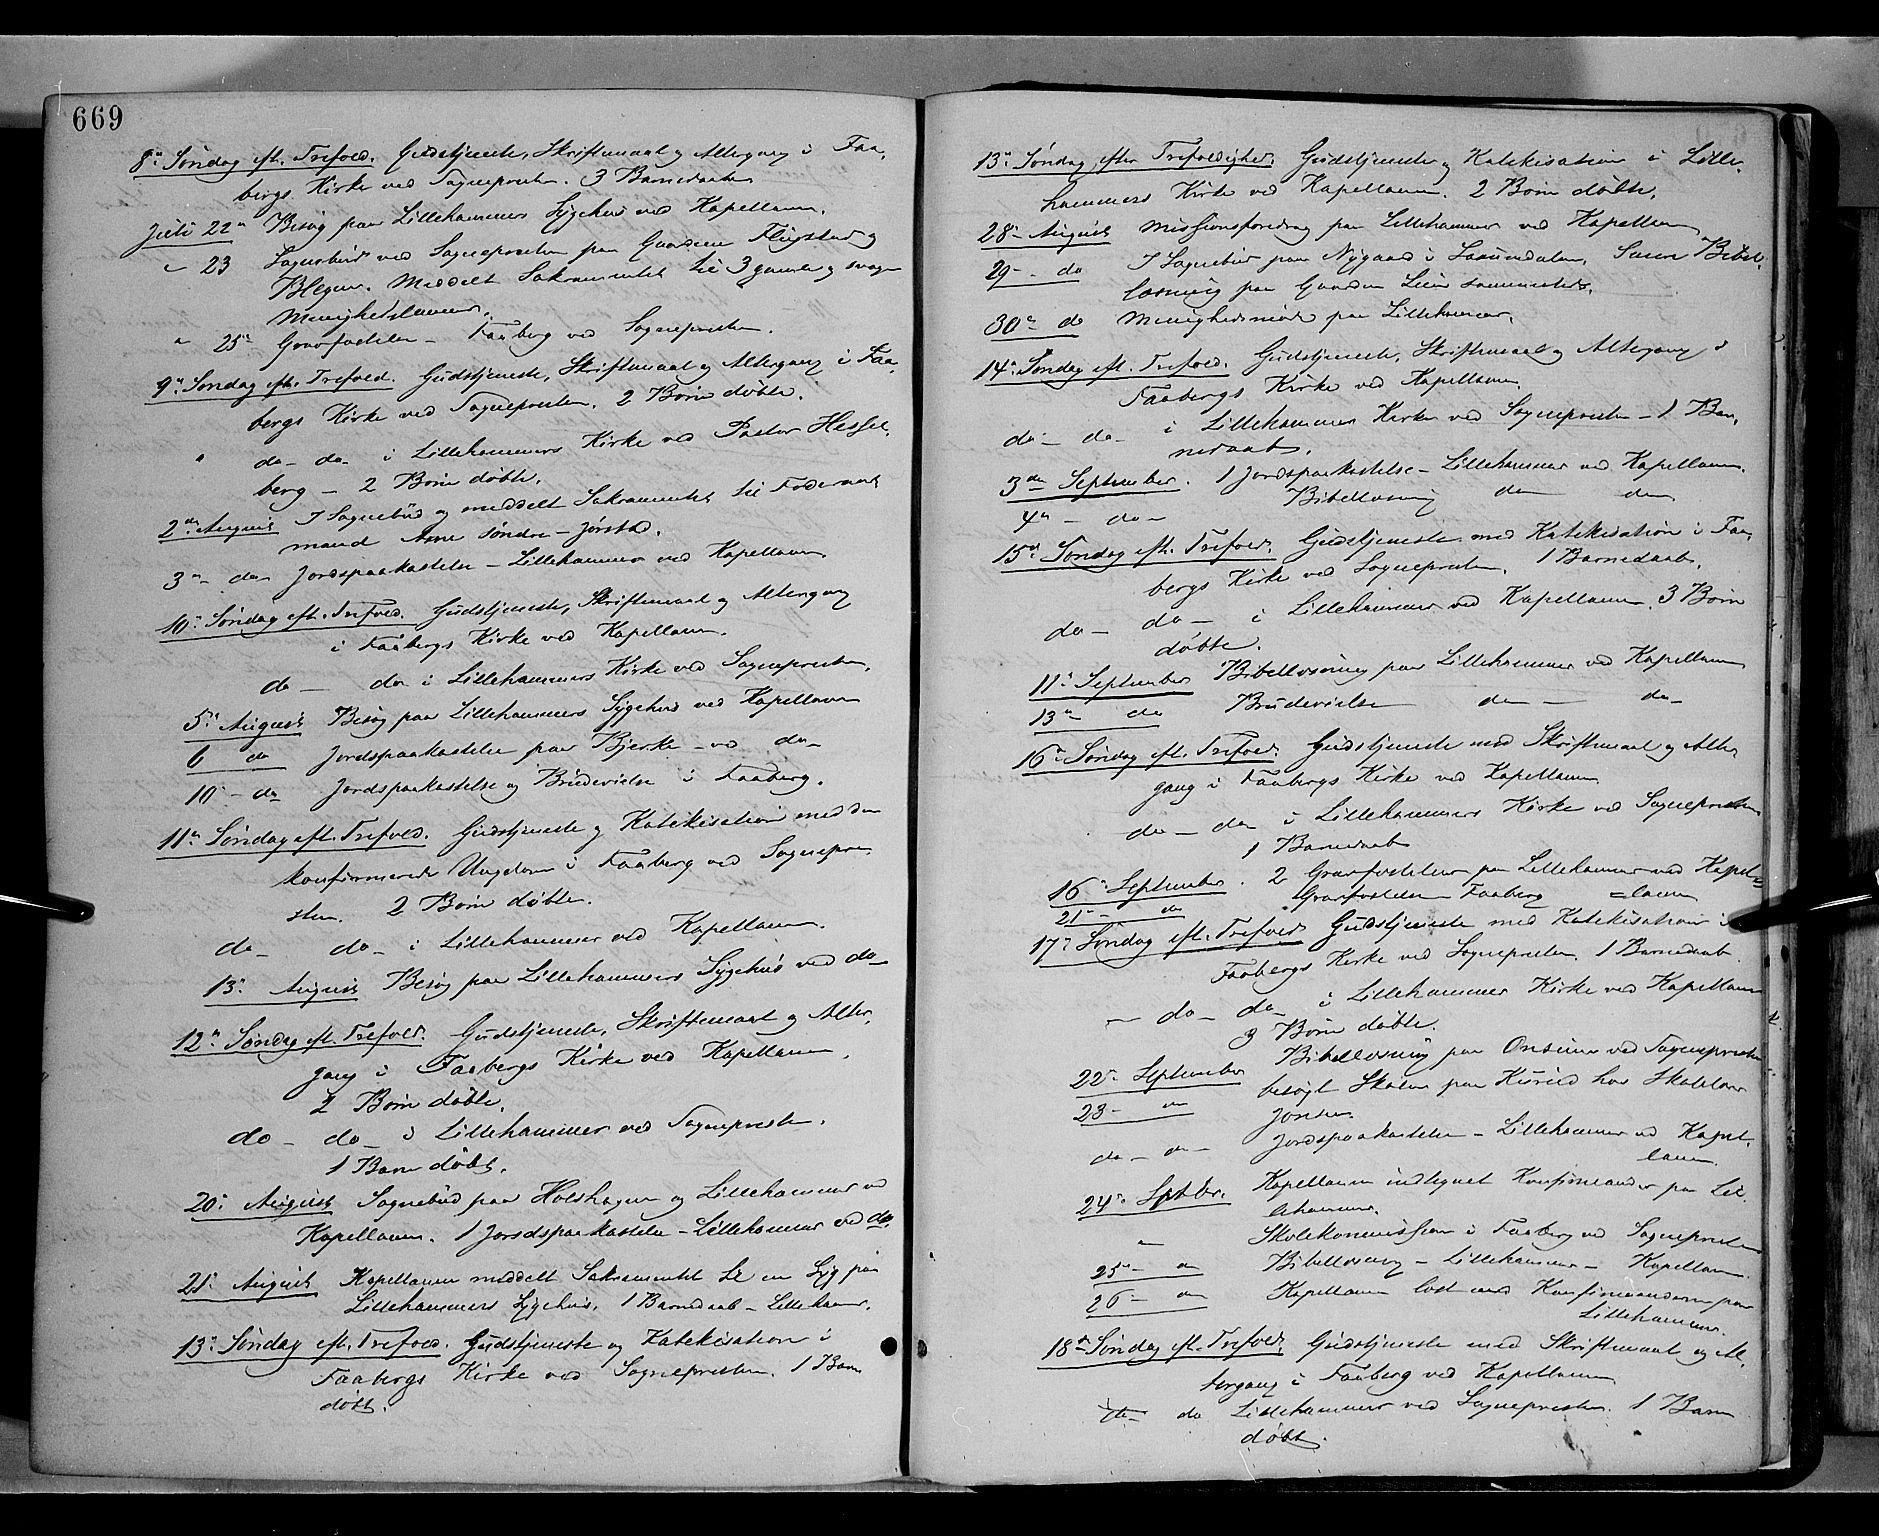 669
8de Søndag eft. Trefold. Gudstjeneste, Skriftemaal og Altergang i Faa-
bergs Kirke ved Sognepresten. 3 Barnedaab
Juli 22de Besøg paa Lillehammers Sygehus ved Kapellanen.
" 23 Sognebud ved Sognepresten paa Gaardene Flugstad og
Blegen. Meddelt Sakramentet til 3 gamle og svage
Menighedslemmer.
" 25de Gravfæstelse - Faaberg ved Sognepresten.
9de Søndag eft. Trefold. Gudstjeneste, Skriftemaal og Altergang i Faa-
bergs Kirke ved Sognepresten. 2 Børn døbte.
" do - do - i Lillehammers Kirke ved Pastor Hessel-
berg - 2 Børn døbte.
2den August I Sognebud og meddelt Sakramentet til Føderaads
mand Arne søndre - Jørstad.
3de - do - Jordspaakastelse - Lillehammer ved Kapellanen
10de Søndag eft. Trefold. Gudstjeneste, Skriftemaal og Altergang
i Faabergs Kirke ved Kapellanen.
do - do i Lillehammers Kirke ved Sognepresten.
5te August Besøg paa Lillehammers Sygehus ved Kapellanen
6 do Jordspaakastelse paa Bjerke - ved do -
10 - do Jordspaakastelse og Brudevielse i Faaberg.
11te Søndag eft. Trefold. Gudstjeneste og Katekisation med den
konfirmerede Ungdom i Faaberg ved Sognepre-
sten. 2 Børn døbte.
do - do - i Lillehammer ved Kapellanen.
13de August Besøg paa Lillehammers Sygehus ved do -
12te Søndag eft. Trefold. Gudstjeneste, Skriftemaal og Alter-
gang i Faabergs Kirke ved Kapellanen.
2 Børn døbte.
do - do - i Lillehammer ved Sognepresten.
1 Barn døbt.
20de August Sognebud paa Holshagen og Lillehammer ved
Kapellanen. 1 Jordspaakastelse - Lillehammer ved do.
21de August Kapellanen meddelt Sakramentet til en Syg paa
Lillehammers Sygehus. 1 Barnedaab - Lillehammer.
13de Søndag eft. Trefold. Gudstjeneste og Katekisation i
Faabergs Kirke ved Sognepresten. 1 Barn
døbt.
13de Søndag efter Trefoldighed. Gudstjeneste og Katekisation i Lille-
hammers Kirke ved Kapellanen. 2 Børn døbte.
28de August Missionsforedrag paa Lillehammer ved Kapellanen
29 - do I Sognebud paa Nygaard i Saxumdalen. Samme Bibel-
læsning paa Gaarden Lien sammesteds.
30de do Menighedsmøde paa Lillehammer.
14de Søndag eft. Trefold. Gudstjeneste, Skriftemaal og Altergang i
Faabergs Kirke ved Kapellanen
do - do - i Lillehammers Kirke ved Sognepresten - 1 Bar-
nedaab.
3die September. 1 Jordspaakastelse - Lillehammer ved Kapellanen.
4de - do - Bibellæsning do - do
15de Søndag eft. Trefold. Gudstjeneste med Katekisation i Faa-
bergs Kirke ved Sognepresten. 1 Barnedaab.
do - do - i Lillehammer ved Kapellanen. 3 Børn
døbte.
11te September Bibellæsning paa Lillehammer ved Kapellanen
13de do Brudevielse do - do -
16de Søndag eft. Trefold. Gudstjeneste med Skriftemaal og Alter-
gang i Faabergs Kirke ved Kapellanen
do - do i Lillehammers Kirke ved Sognepresten
1 Barnedaab
16de September. 2 Gravfæstelser paa Lillehammer ved Kapel-
21de - do Gravfæstelse Faaberg =lanen
17de Søndag eft. Trefold. Gudstjeneste med Katekisation i
Faabergs Kirke ved Sognepresten. 1 Barnedaab.
- do - do - i Lillehammer Kirke ved Kapellanen
3 Børn døbte.
22de September Bibellæsning paa Onsum ved Sognepresten
23 - do besøgt Skolen paa hos Skolelærer
Jonsen.
do - do - Jordspaakastelse - Lillehammer ved Kapel-
lanen.
24de Septbr. Kapellanen indtegnet Konfirmander paa Lil-
lehammer.
" Skolekommission i Faaberg ved Sognepresten
25de - do Bibellæsning - Lillehammer - Kapellanen.
26 - do Kapellanen læst med Konfirmanderne paa
Lillehammer.
18de Søndag eft. Trefold. Gudstjeneste med Skriftemaal og Al-
tergang i Faaberg ved Kapellanen
do - do Lillehammer ved Sognepresten. 1 Barn
døbt.